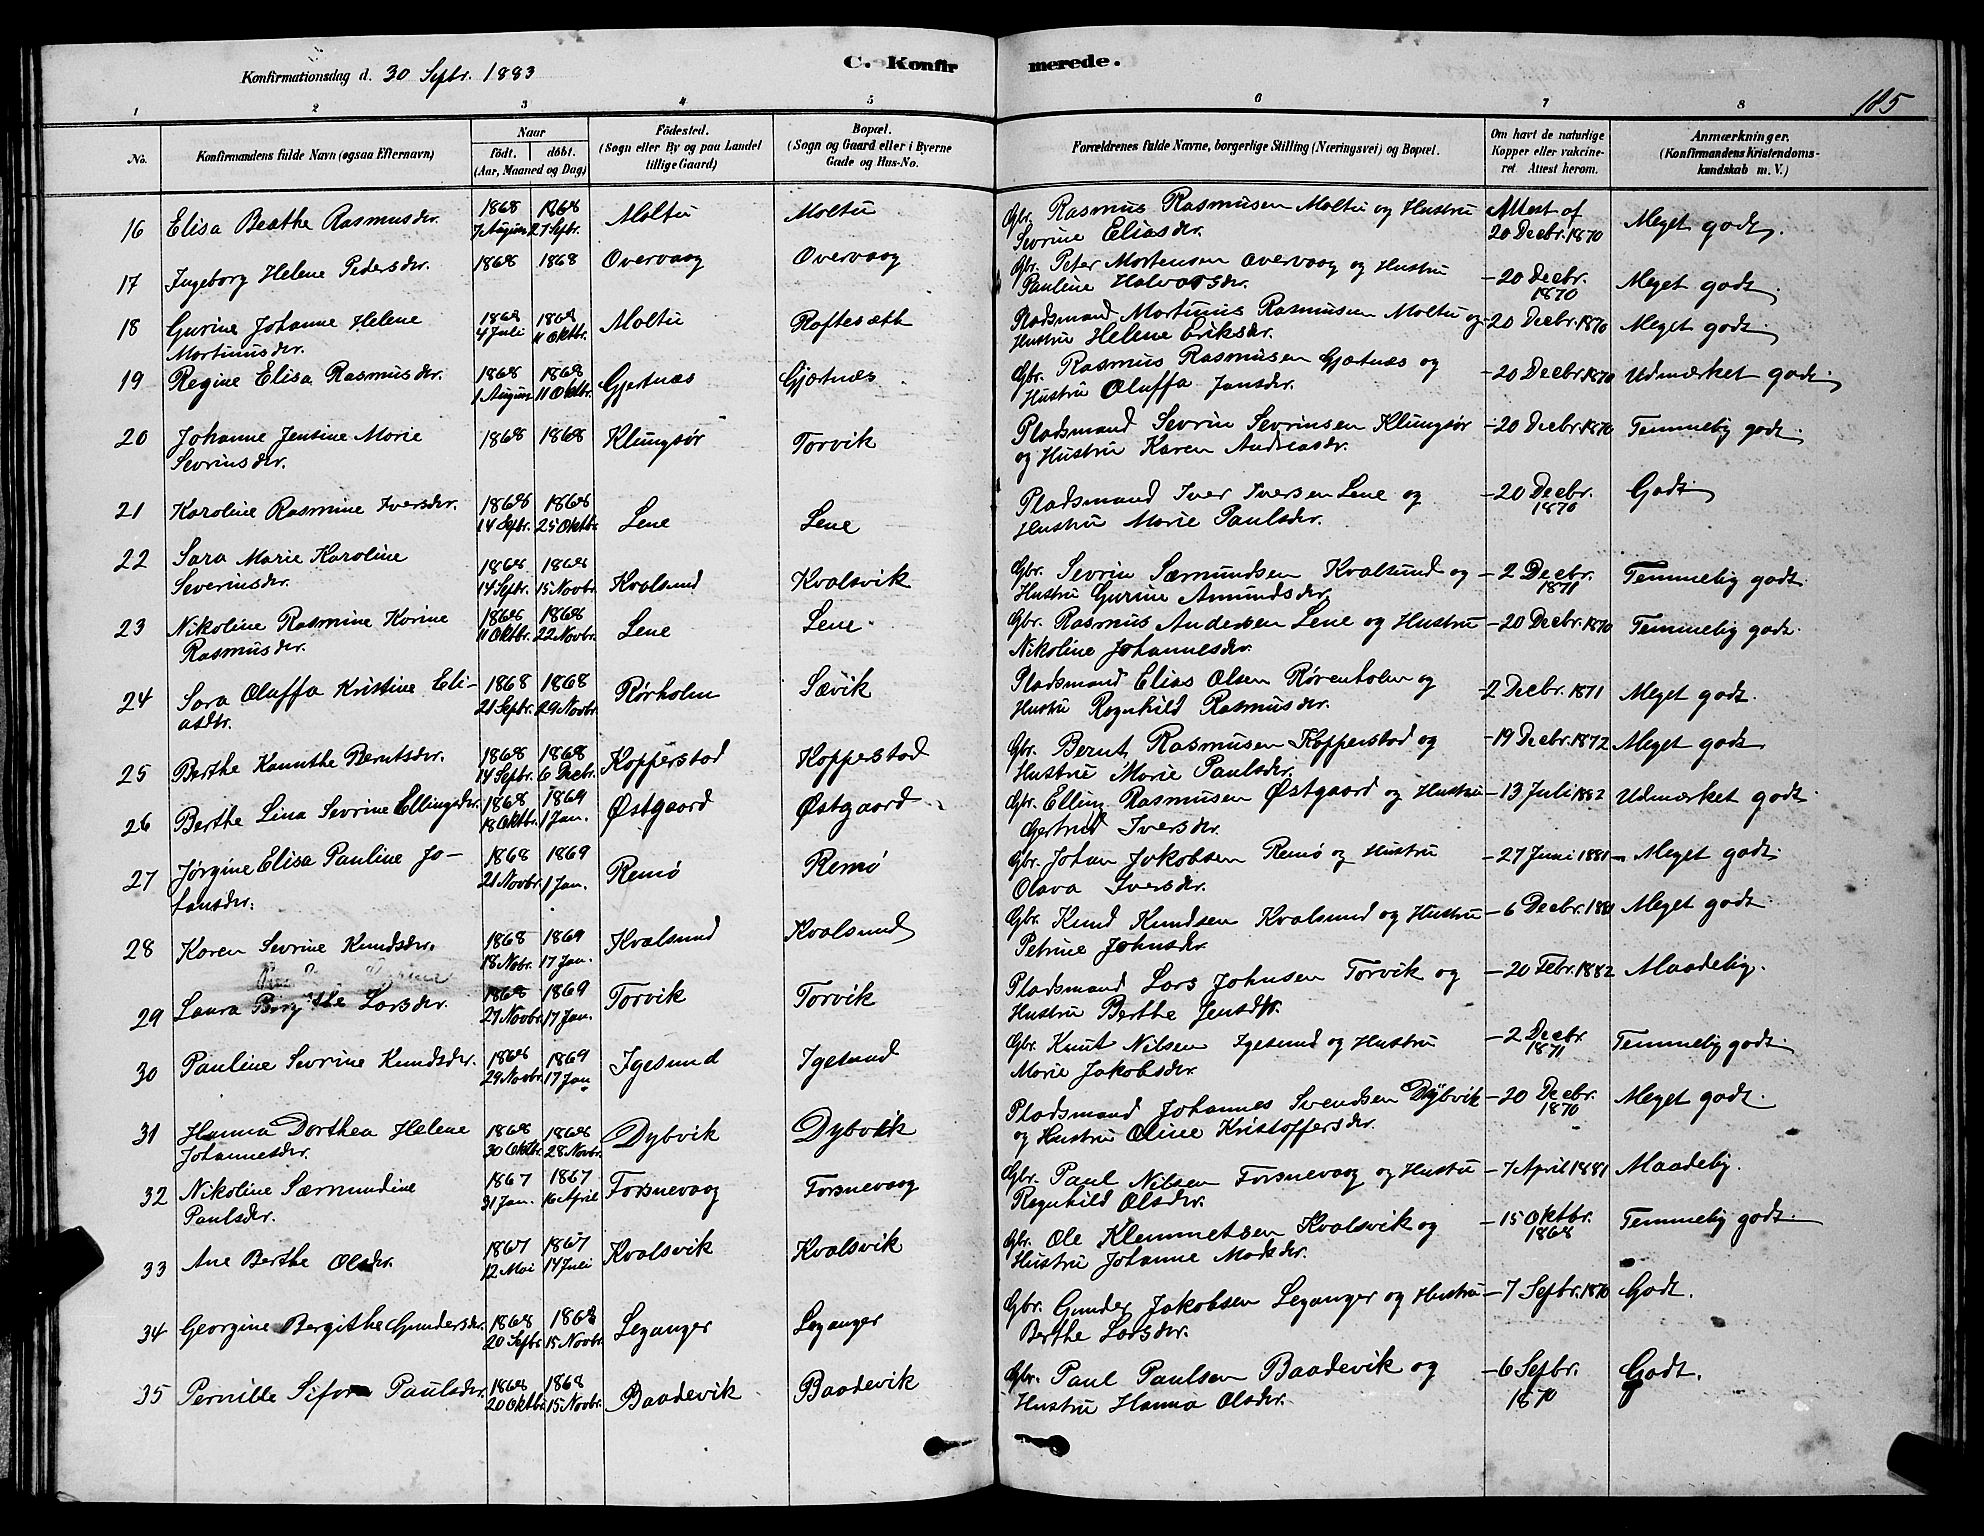 Konfirmationsdag d. 30 Septbr. 1883
C. Konfirmerede.
185
1 2 3 4 5 6 7 8
No.
Konfirmandens fulde Navn (ogsaa Efternavn)
Naar
födt. döbt.
(Aar, Maaned og Dag)
Födested.
(Sogn eller By og paa Landet
tillige Gaard)
Bopæl.
(Sogn og Gaard eller i Byerne
Gade og Hus-No.
Forældrenes fulde Navne, borgerlige Stilling (Næringsvei) og Bopæl.
Om havt de naturlige
Kopper eller vakcine-
ret Attest herom.
Anmærkninger.
(Konfirmandens Kristendoms-
kundskab m. V.)
16 Elisa Beathe Rasmusdr. 1868 7 August 1868 27 Septbr. Moltu Moltu Gbr. Rasmus Rasmusen Moltu og Hustru Attest af
Sevrine Eliasdr. 20 Decbr. 1870 Meget godt.
17 Ingeborg Helene Pedersdr. 1868 1868 Overvaag Overvaag Gbr. Peter Mortensen Overvaag og Hustru
Pauline Halvorsdr. - 20 Decbr. 1870 Meget godt.
18 Gurine Johanne Helene
Mortinusdr. 1868 4 Juli 1868 11 Oktbr. Moltu Roftesæth Pladsmand Mortinus Rasmusen Moltu og
Hustru Helene Eriksdr. - 20 Decbr. 1870 Meget godt.
19 Regine Elisa Rasmusdr. 1868 1 August 1868 11 Oktbr. Gjertnæs Gjertnæs Gbr. Rasmus Rasmusen Gjertnæs og
Hustru Oluffa Jansdr. - 20 Decbr. 1870 Udmærket godt.
20 Johanne Jensine Marie
Sevrinsdr. 1868 1868 Klungsør Torvik Pladsmand Sevrin Sevrinsen Klungsør
og Hustru Karen Andreasdr. - 20 Decbr. 1870 Temmelig godt.
21 Karoline Rasmine Iversdr. 1868 14 Septbr. 1868 25 Oktbr. Lene Lene Pladsmand Iver Iversen Lene og
Hustru Marie Paulsdr. - 20 Decbr. 1870 Godt
22 Sara Marie Karoline
Severinsdr. 1868 14 Septbr. 1868 15 Novbr. Kvalsund Kvalsvik Gbr. Sevrin Sæmundsen Kvalsund og
Hustru Gurine Amundsdr. - 2 Decbr. 1871 Temmelig godt.
23 Nikoline Rasmine Karine
Rasmusdr. 1868 11 Oktbr. 1868 22 Novbr. Lene Lene Gbr. Rasmus Andersen Lene og Hustru
Nikoline Johannesdr. - 20 Decbr. 1870 Temmelig godt.
24 Sara Oluffa Kristine Eli-
asdtr. 1868 21 Septbr. 1868 29 Novbr. Rørholm Sævik Pladsmand Elias Olsen Rørenholm og
Hustru Ragnhild Rasmusdr. - 2 Decbr. 1871 Meget godt.
25 Berthe Kanuthe Berntsdr. 1868 14 Septbr. 1868 6 Decbr. Kopperstad Koppestad Gbr. Bernt Rasmusen Kopperstad og
Hustru Marie Paulsdr. - 19 Decbr. 1872 Meget godt
26 Berthe Lina Sevrine Ellingsdr. 1868 18 Oktbr. 1869 1 Jan. Østgaard Østgaard Gbr. Elling Rasmusen Østgaard og Hustru
Gertrud Iversdr. - 13 Juli 1882 Udmærket godt.
27 Jørgine Elisa Pauline Jo-
hansdr. 1868 21 Novbr. 1869 1 Jan. Remø Remø Gbr. Johan Jakobsen Remø og Hustru
Olava Iversdr. - 27 Juni 1881 - Meget godt.
28 Karen Sevrine Knudsdr. 1868 18 Nobr. 1869 17 Jan. Kvalsund Kvalsund Gbr. Knud Knudsen Kvalsund og Hustru
Petrine Johnsdr. - 6 Decbr. 1881 Meget godt.
29 Laura Birgithe Larsdr. 1868 27 Novbr. 1869 17 Jan. Torvik Torvik Pladsmand Lars Johnsen Torvik og
Hustru Berthe Jensdtr. - 20 Febr. 1882 Maadelig.
30 Pauline Sevrine Knudsdr. 1868 29 Novbr. 1869 17 Jan Igesund Igesund Gbr. Knut Nilsen Igesund og Hustru
Marie Jakobsdr. - 2 Decbr 1871 Temmelig godt.
31 Hanna Dorthea Helene
Johannesdr. 1868 30 Oktbr. 1868 28 Novbr. Dybvik Dybvik Pladsmand Johannes Svendsen Dybvik
og Hustru Oline Kristoffersdr. - 20 Decbr. 1870 Meget godt.
32 Nikoline Særmundine
Paulsdr. 1867 31 Jan. 1867 16 April Forsnevaag Forsnevaag Gbr. Paul Nilsen Forsnevaag og Hustru
Regnhild Olsdr. - 7 April 1881 Maadelig.
33 Ane Berthe Olsdr. 1867 12 Mai 1867 14 Juli Kvalsvik Kvalsvik Gbr. Ole Klemmetsen Kvalsvik og
Hustru Johanne Madsdr. - 15 Oktbr. 1868 Temmelig godt.
34 Georgine Bergithe Gundersdr. 1868 20 Septbr. 1868 15 Novbr. Leganger Leganger Gbr. Gunder Jakobsen Leganger og Hustru
Berthe Larsdr. - 7 Septbr. 1870 Godt.
35 Pernille Sifora Paulsdr. 1868 20 Oktbr. 1868 15 Novbr. Baadevik Baadevik Gbr. Paul Paulsen Baadevik og
Hustru Hanna Olsdr. - 6 Septbr. 1870 Godt.